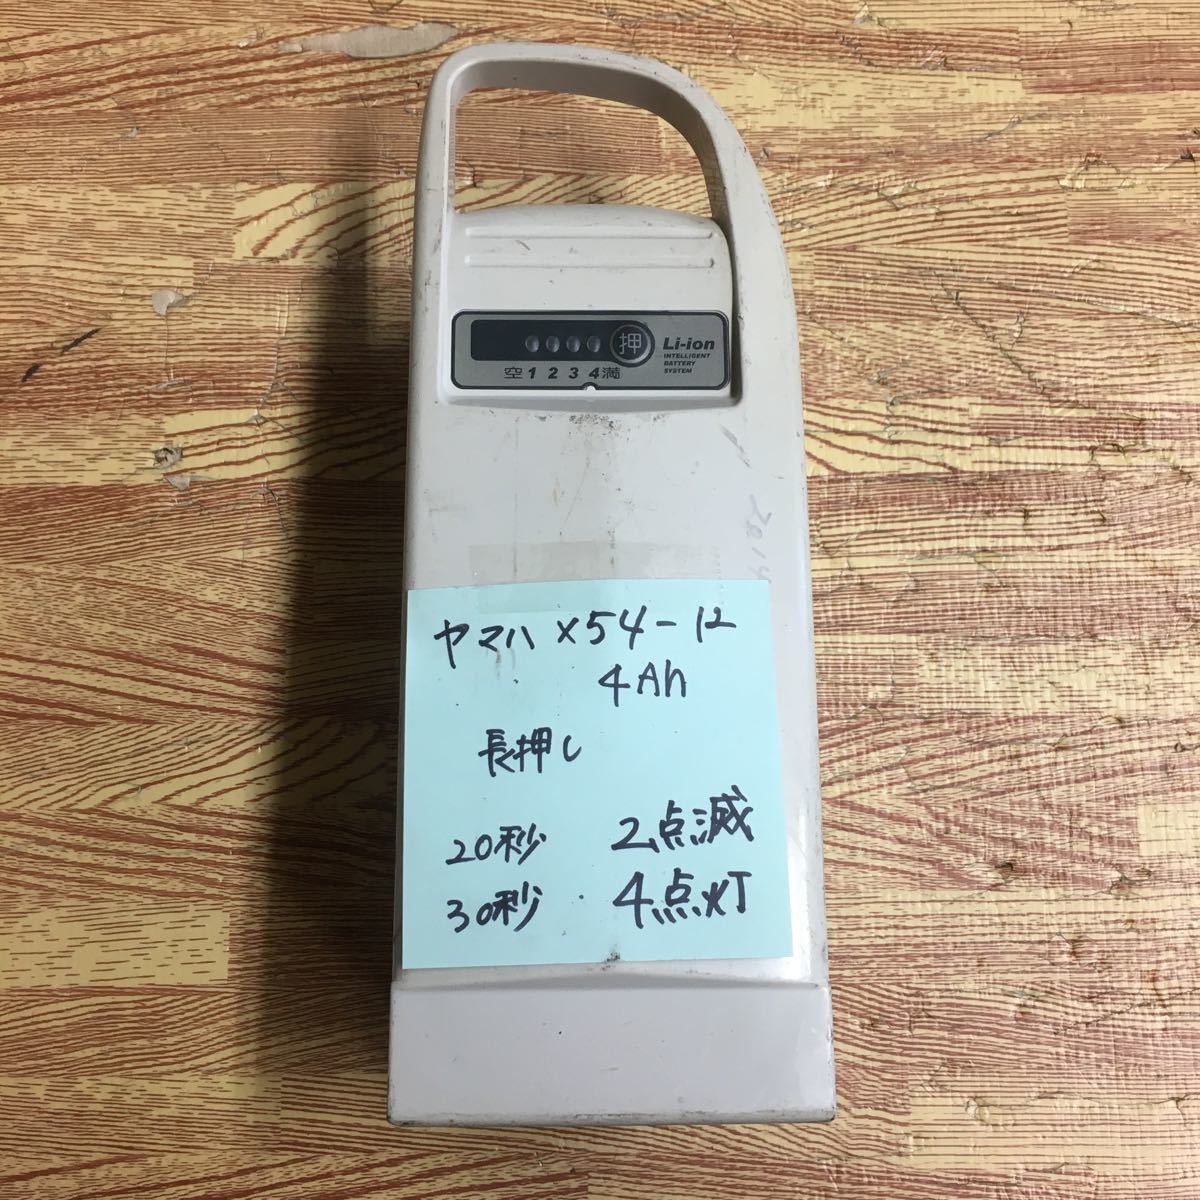 押
Li-ion
INTELLIGENT
BATTERY
SYSTEM
空 1 2 3 4 満
2014
ヤマハ X54-12
4Ah
長押し
20秒 2点滅
30秒 4点灯